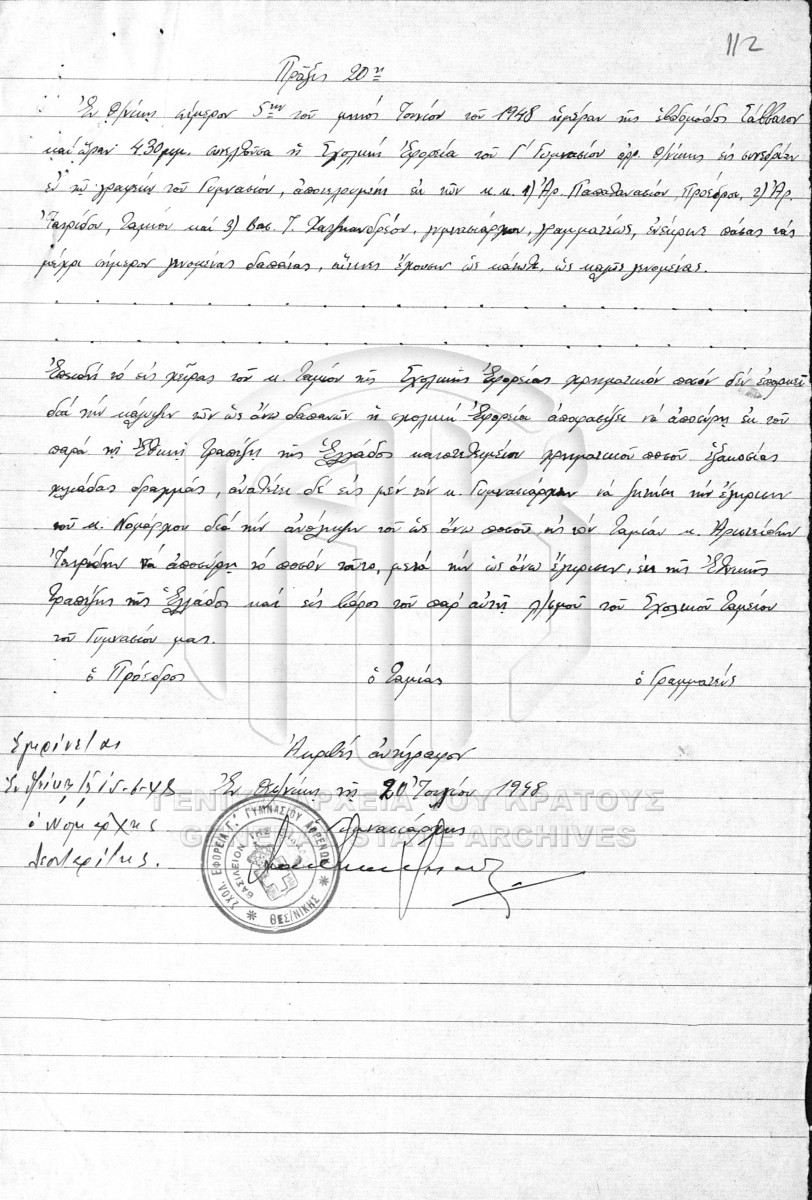 112
Πρᾶξις 20η
Ἐν Θ/νίκῃ σήμερον 5ην τοῦ μηνὸς Ἰουνίου τοῦ 1948 ἡμέραν τῆς ἑβδομάδος Σάββατον
καὶ ὥραν 4.30 μ.μ. συνελθοῦσα ἡ Σχολικὴ Ἐφορεία τοῦ Γ' Γυμνασίου ἀρρ. Θ/νίκης εἰς συνεδρίαν
ἐν τῷ γραφείῳ τοῦ Γυμνασίου, ἀποτελουμένη ἐκ τῶν κ.κ. 1) Ἀρ. Παπαθανασίου, Προέδρου, 2) Ἀρ.
Ἰατρίδου, Ταμίου καὶ 3) Βασ. Ι. Χατζηανδρέου, γυμνασιάρχου, γραμματέως, ἐνέκρινε πάσας τὰς
μέχρι σήμερον γενομένας δαπάνας, αἵτινες ἔχουσιν ὡς κάτωθι, ὡς καλῶς γενομένας.
Ἐπειδὴ τὸ εἰς χεῖρας τοῦ κ. Ταμίου τῆς Σχολικῆς Ἐφορείας χρηματικὸν ποσὸν δὲν ἐπαρκεῖ
διὰ τὴν κάλυψιν τῶν ὡς ἄνω δαπανῶν ἡ σχολικὴ Ἐφορεία ἀποφασίζει νὰ ἀποσύρῃ ἐκ τοῦ
παρὰ τῇ Ἐθνικῇ Τραπέζῃ τῆς Ἑλλάδος κατατεθειμένου χρηματικοῦ ποσοῦ ἑξακοσίας
χιλιάδας δραχμάς, ἀναθέτει δὲ εἰς μὲν τὸν κ. Γυμνασιάρχην νὰ ζητήσῃ τὴν ἔγκρισιν
τοῦ κ. Νομάρχου διὰ τὴν ἀνάληψιν τοῦ ὡς ἄνω ποσοῦ τὸν Ταμίαν κ. Ἀριστείδην
Ἰατρίδην νὰ ἀποσύρῃ τὸ ποσὸν τοῦτο, μετὰ τὴν ὡς ἄνω ἔγκρισιν, ἐκ τῆς Ἐθνικῆς
Τραπέζης τῆς Ἑλλάδος καὶ εἰς βάρος τοῦ παρ' αὐτῇ λ/σμοῦ τοῦ Σχολικοῦ Ταμείου
τοῦ Γυμνασίου μας.
ὁ Πρόεδρος ὁ Ταμίας ὁ Γραμματεύς
Ἐγκρίνεται Ἀκριβὲς ἀντίγραφον
15-6-48 Ἐν Θεσ/νίκῃ τῇ 20 Ἰουλίου 1948
ὁ Νομάρχης Γυμνασιάρχης
ΓΕΝΙΚΑ ΑΡΧΕΙΑ ΤΟΥ ΚΡΑΤΟΥΣ
GENERAL STATE ARCHIVES
ΣΧΟΛ. ΕΦΟΡΕΙΑ Γ' ΓΥΜΝΑΣΙΟΥ ΑΡΡΕΝΩΝ
ΘΕΣ/ΝΙΚΗΣ
ΒΑΣΙΛΕΙΟΝ ΤΗΣ ΕΛΛΑΔΟΣ